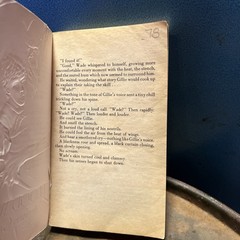 78
"I found it!"
"Good," Wade whispered to himself, growing more
uncomfortable every moment with the heat, the stench,
and the muted roar which now seemed to surround him.
He waited, wondering what story Gillie would cook up
to explain that taking the skiff.
"Wade?"
Something in the tone of Gillie's voice sent a tiny chill
down his spine.
"Wade?"
Not a cry, not a loud call. "Wade!" Then rapidly:
"Wade! Wade!" Then louder and louder.
He could see Gillie.
And smell the stench.
It burned the lining of his nostrils.
He could feel the air from the beat of wings.
And hear a smothered cry
A blackness rose and spread, a black curtain closing,
then slowly opening.
No scream.
Wade's skin turned cool and clammy.
Then his senses began to shut down.